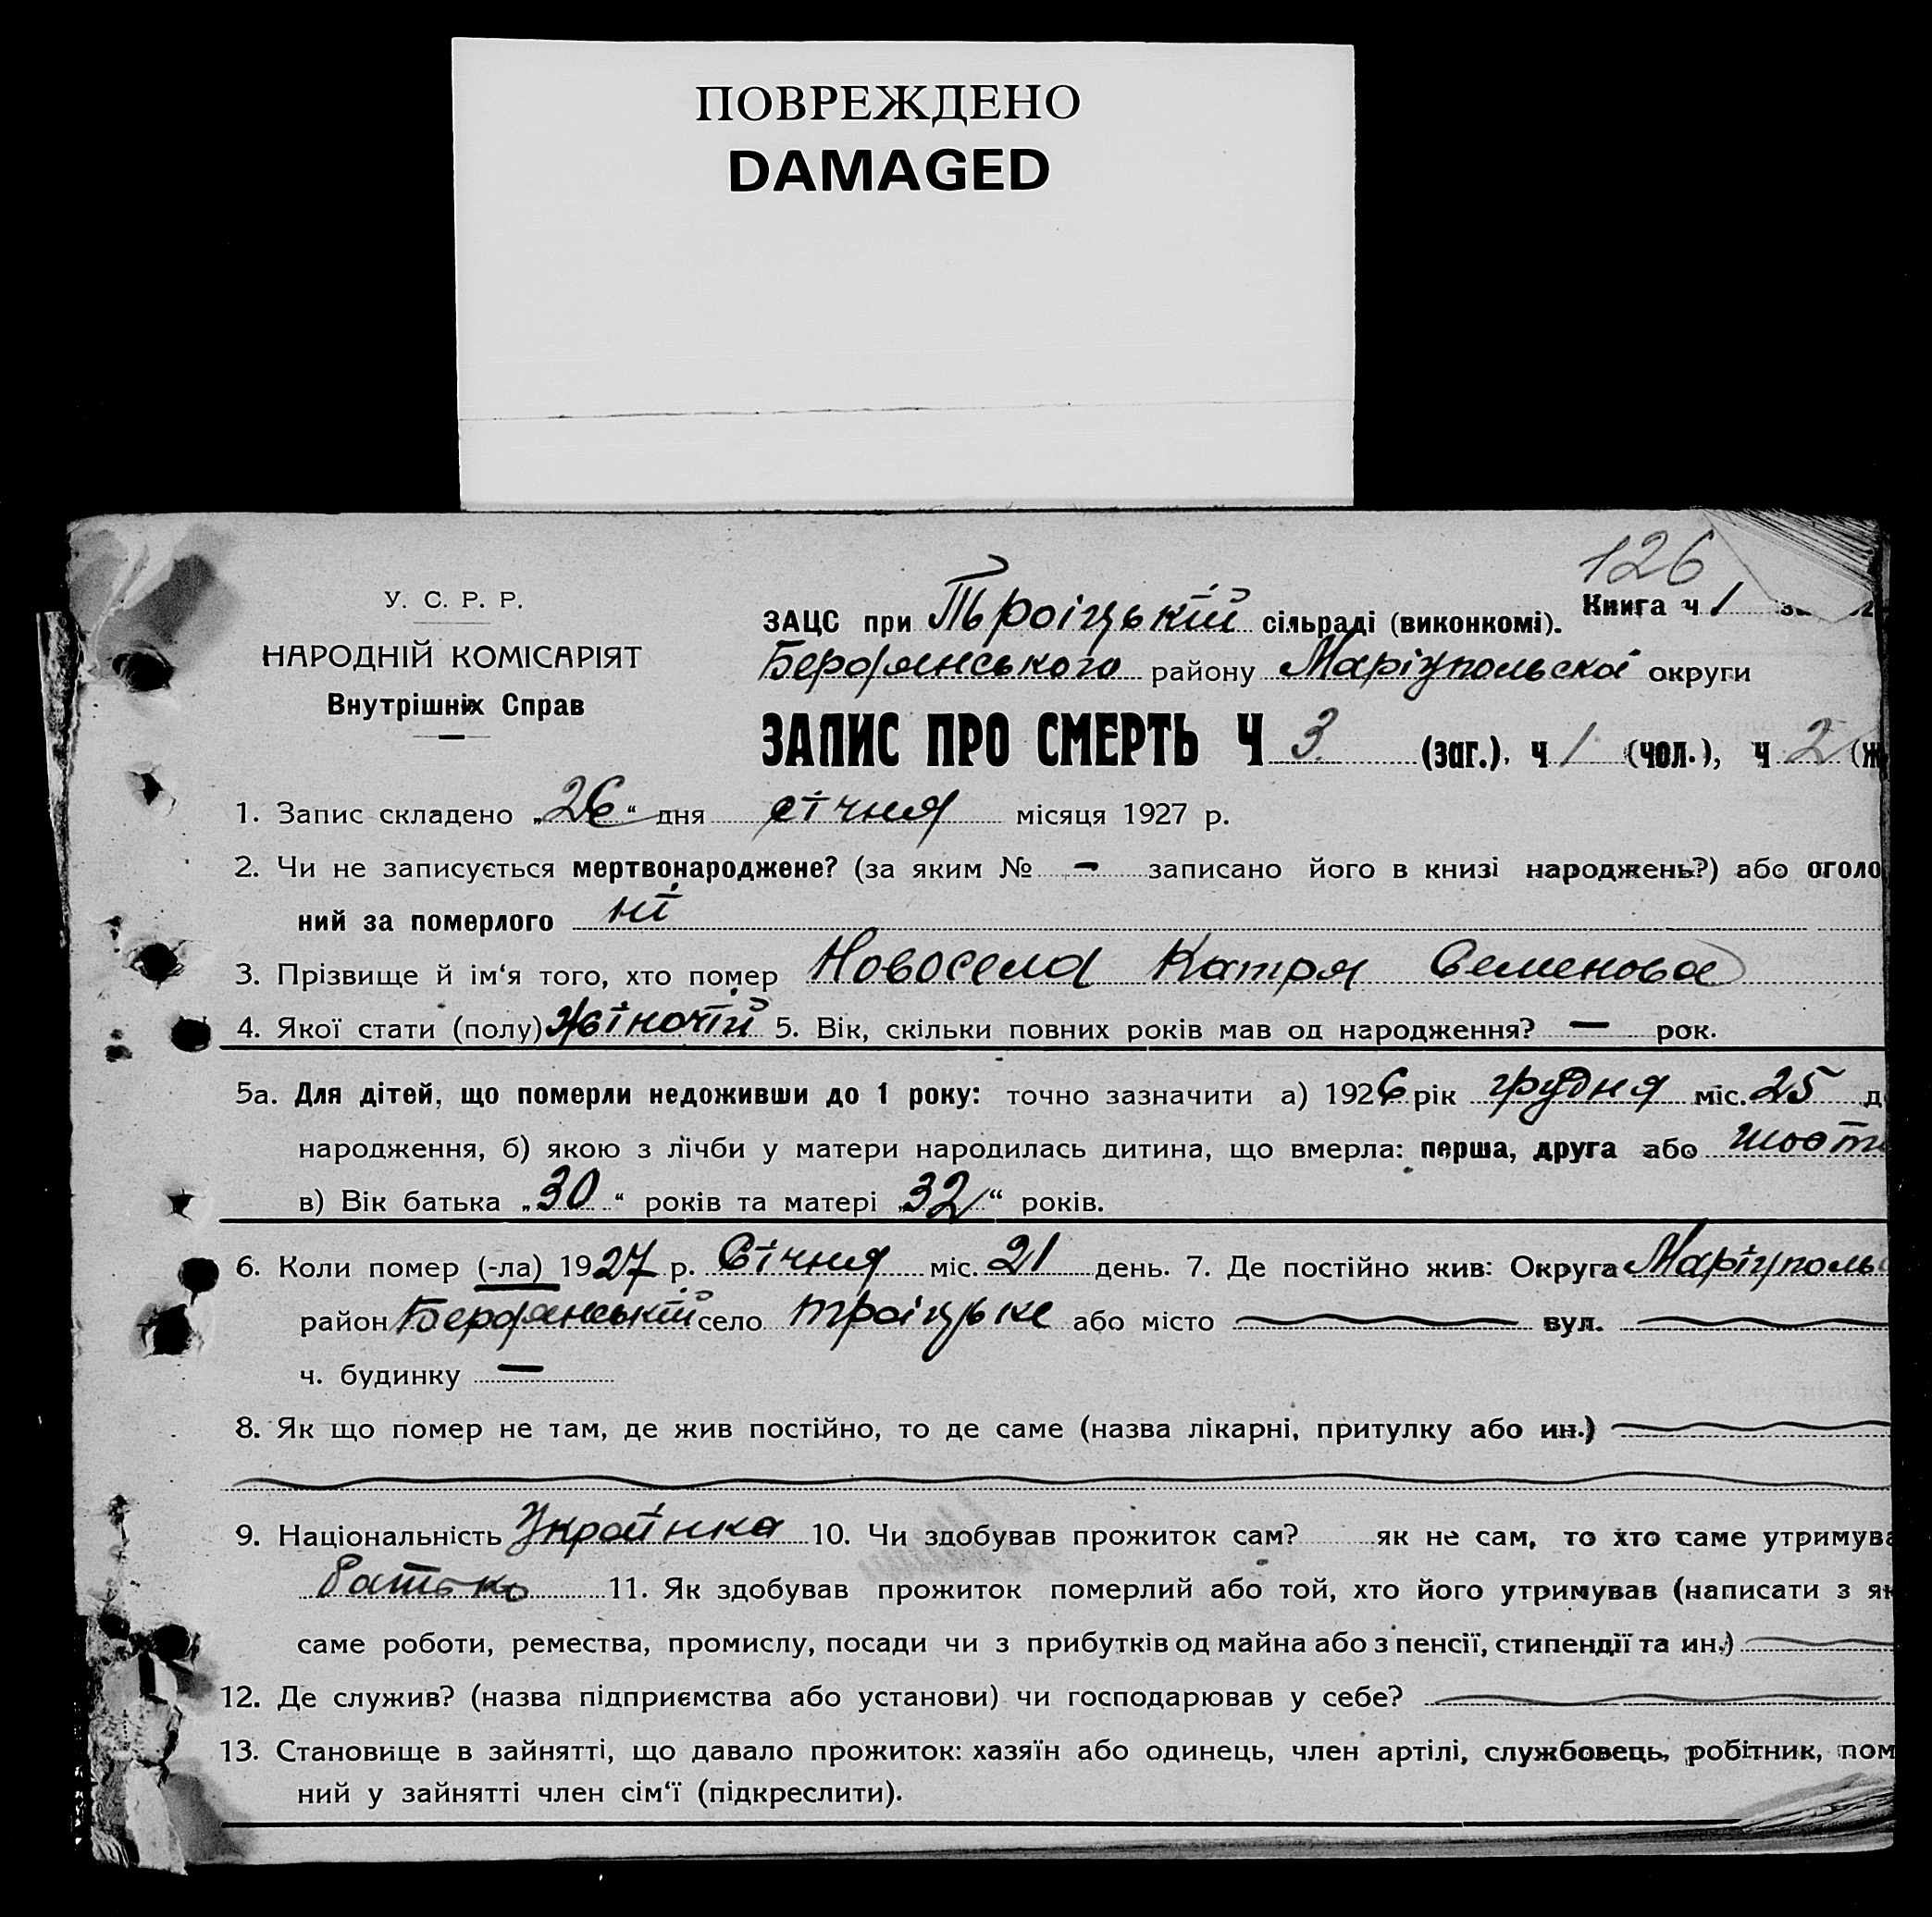 ПОВРЕЖДЕНО
DAMAGED
126
Книга ч 1
У. С. Р. Р.
НАРОДНІЙ КОМІСАРІЯТ
Внутрішніх Справ
ЗАЦС при Троіцькій сільраді (виконкомі).
Бердянського району Маріупольскої округи
ЗАПИС ПРО СМЕРТЬ Ч 3 (заг.), ч 1 (чол.), ч 2 (ж
1. Запис складено „26“ дня січня місяця 1927 р.
2. Чи не записується мертвонароджене? (за яким № — записано його в книзі народжень?) або оголо
ний за померлого ні
3. Прізвище й ім‘я того, хто помер Новосела Катря Семенова
4. Якої стати (полу) жіночій 5. Вік, скільки повних років мав од народження? — рок.
5а. Для дітей, що померли недоживши до 1 року: точно зазначити а) 1926 рік грудня міс. 25 д
народження, б) якою з лічби у матери народилась дитина, що вмерла: перша, друга або шост
в) Вік батька „30“ років та матері „32“ років.
6. Коли помер (-ла) 1927 р. Січня міс. 21 день. 7. Де постійно жив: Округа Маріуполь
район Бердянській село Троіцьке або місто вул.
ч. будинку —
8. Як що помер не там, де жив постійно, то де саме (назва лікарні, притулку або ин.)
9. Національність Українка 10. Чи здобував прожиток сам? як не сам, то хто саме утримува
батько 11. Як здобував прожиток померлий або той, хто його утримував (написати з як
саме роботи, ремества, промислу, посади чи з прибутків од майна або з пенсії, стипендії та ин.)
12. Де служив? (назва підприємства або установи) чи господарював у себе?
13. Становище в зайнятті, що давало прожиток: хазяїн або одинець, член артілі, службовець, робітник, пом
ний у зайнятті член сім‘ї (підкреслити).